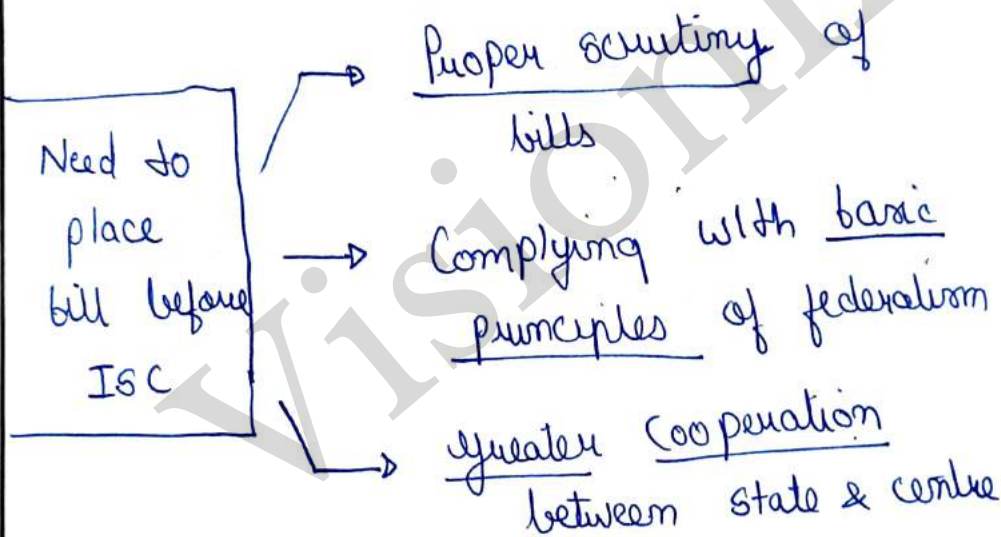 Need to
place
bill before
ISC
Proper scrutiny of
bills
Complying with basic
principles of federalism
greater cooperation
between state & centre
Vision